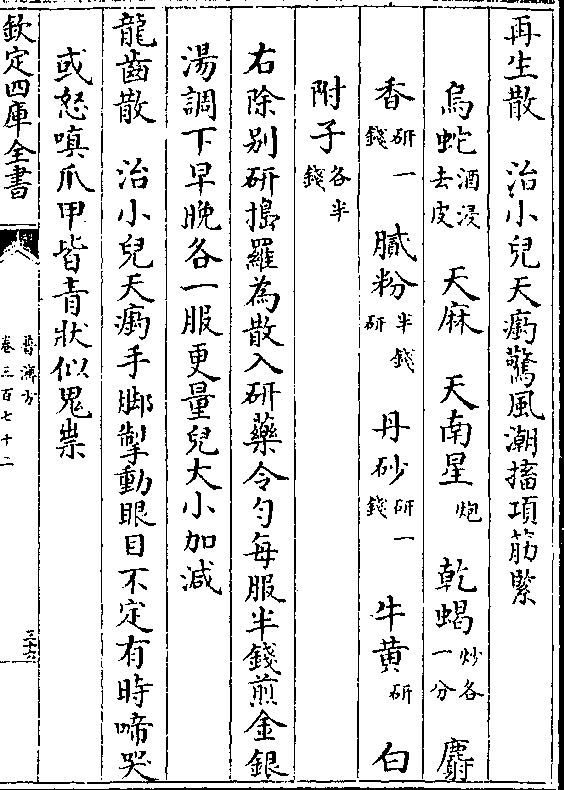 再生散　治小兒天瘹驚風潮搐項筋緊
烏蛇酒浸去皮　天麻　天南星炮　乾蝎炒各一分　麝
香研一錢　膩粉半錢研　丹砂研一錢　牛黃研　白
附子各半錢
右除别研搗羅為散入研藥令勻每服半錢煎金銀
湯調下早晚各一服更量兒大小加減
龍齒散　治小兒天瘹手脚掣動眼目不定有時啼哭
或怒嗔爪甲皆青狀似鬼祟
欽定四庫全書
普濟方
卷三百七十二
三十六